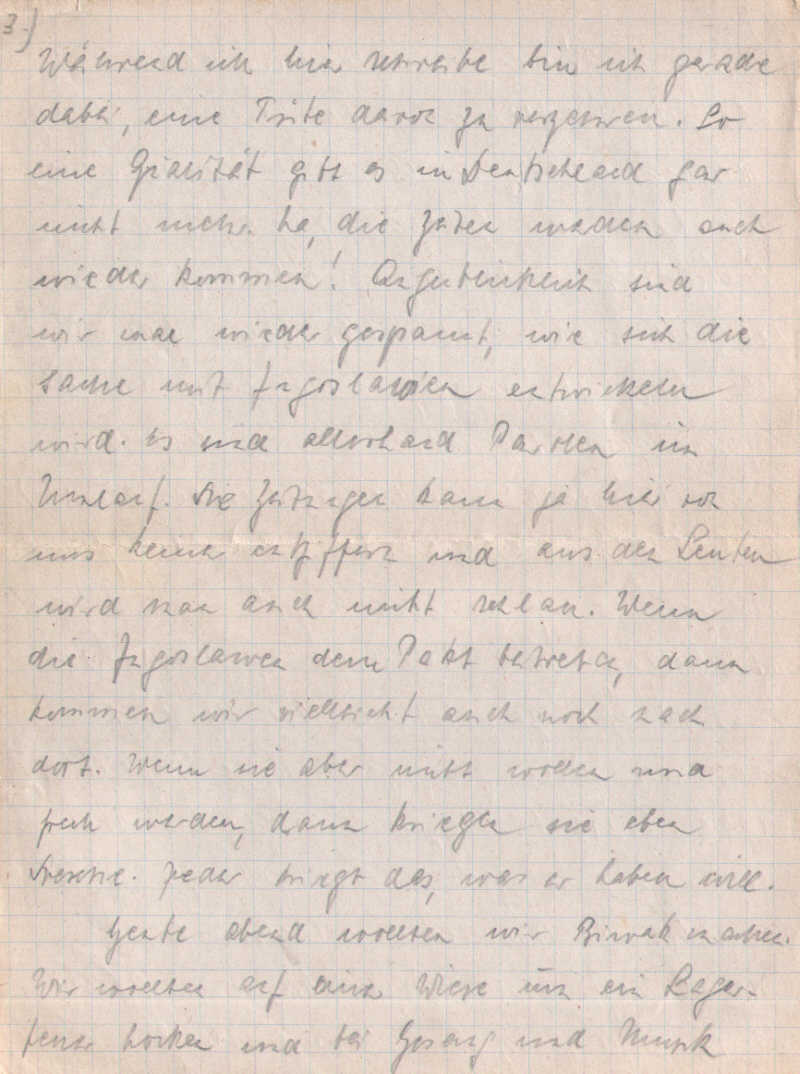 3.)
Während ich hier schreibe bin ich gerade
dabei, eine Tüte davon zu verzehren. So
eine Qualität gibt es in Deutschland gar
nicht mehr. Na, die Zeiten werden auch
wieder kommen! Augenblicklich sind
wir mal wieder gespannt, wie sich die
Sache mit Jugoslawien entwickeln
wird. Es sind allerhand Parolen im
Umlauf. Die Zeitungen kann ja hier von
uns keiner entziffern und aus den Leuten
wird man auch nicht schlau. Wenn
die Jugoslawen dem Pakt beitreten, dann
kommen wir vielleicht auch noch nach
dort. Wenn sie aber nicht wollen und
frech werden, dann kriegen sie eben
Dresche. Jeder kriegt das, was er haben will.
Heute abend wollten wir Biwak machen.
Wir wollten auf einer Wiese um ein Lager-
feuer hocken und bei Gesang und Musik